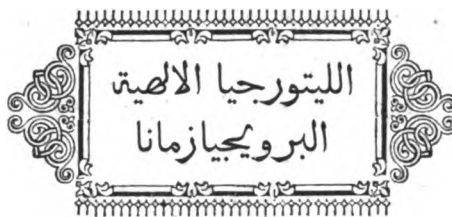 الليتورجيا الالهية
البرويجيازمانا